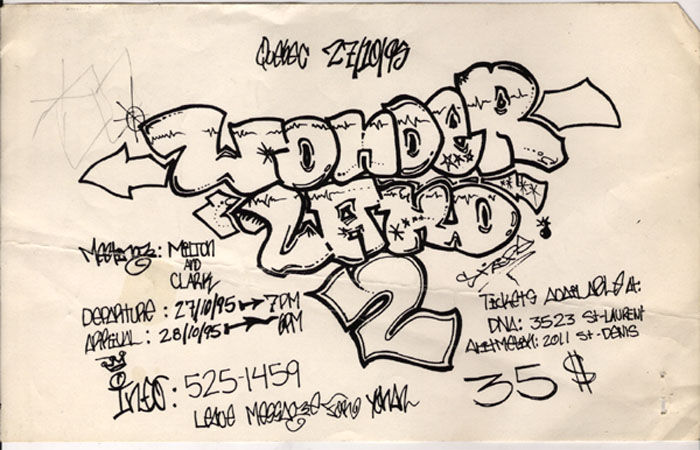 QUEBEC 27/10/95
WONDER
LAND
2
MEETING: MILTON
AND
CLARK
DEPARTURE: 27/10/95 → 7PM
ARRIVAL: 28/10/95 → PM
TICKETS AVAILABLE AT:
DNA: 3523 ST-LAURENT
2011 ST-DENIS
35 $
INFO: 525-1459
LEAVE MESSAGE